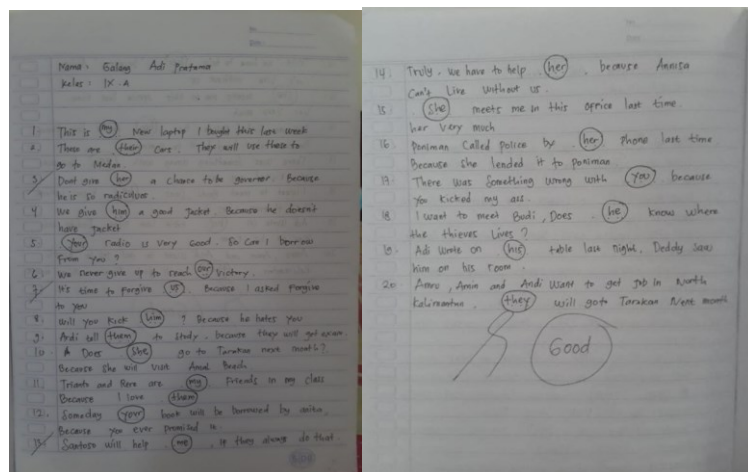 Nama : Galang Adi Pratama
Kelas : IX. A
1. This is my New laptop I bought this last week
2. These are their cars. They will use these to
go to Medan.
3. Dont give her a chance to be governor. Because
he is so radicules.
4 We give him a good jacket. Because he doesn't
have jacket
5 Your radio is very good. So can I borrow
From you?
6. We never give up to reach our victory.
7. It's time to forgive us. Because I asked forgive
to you
8. Will you kick him ? Because he hates you
9. Ardi tell them to study. because they will get exam.
10. Does She go to Tarakan next month?
Because she will visit Amal Beach
11. Trianto and Rere are my Friends in my class
Because I love them
12. Someday your book will be borrowed by
Because you ever promised it.
13. Santoso will help me, if they always do that.
14. Truly. We have to help her. because Annisa
Can't Live without us.
15. She meets me in this office last time.
her very much
16. Poniman Called police by her phone last time
Because she lended it to poniman.
17. There was Something wrong with you because
You kicked my ass.
18 I want to meet Budi, Does he know where
the thieves Lives ?
19. Adi wrote on his table last night. Deddy saw
him on his room.
20. Amin and Andi Want to get job in North
Kalimantan. they will goto Tarakan Next month
Good